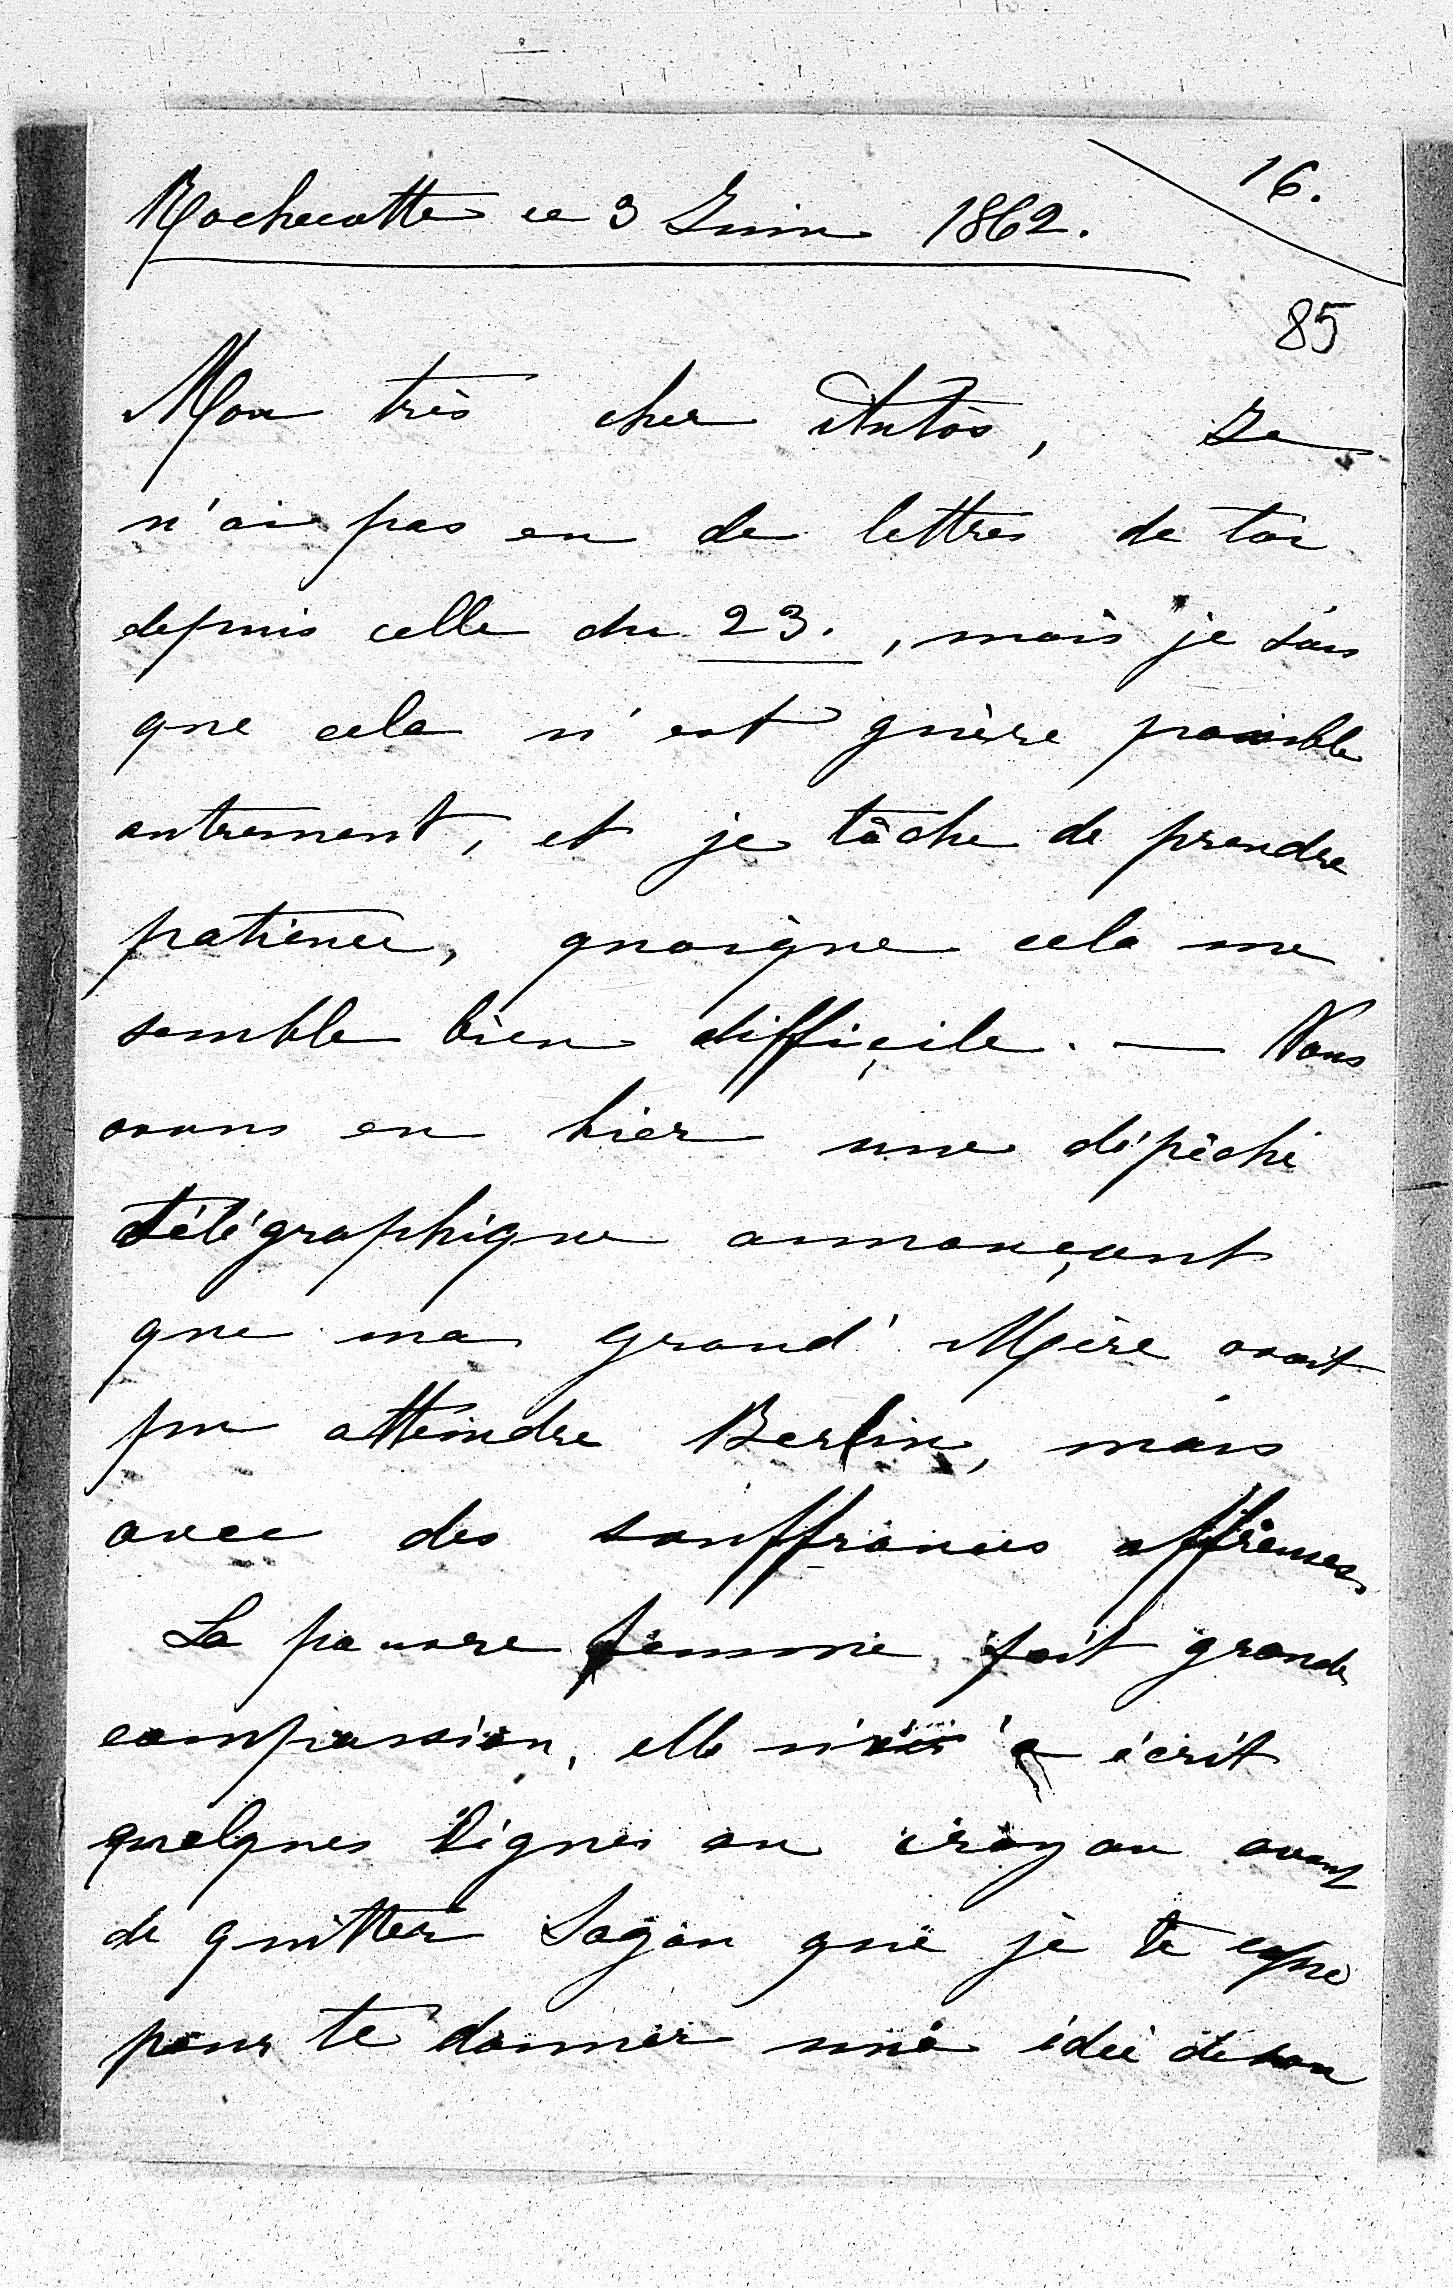 16.
Rochecotte ce 3 Juin 1862.
85
Mon très cher Antôs, Je
n'ai pas eu de lettres de toi
depuis celle du 23., mais je sais
que cela n'est guère possible
autrement, et je tâche de prendre
patience, quoique cela me
semble bien difficile. — Nous
avons eu hier une dépêche
télégraphique annonçant
que ma grand' Mère avait
pu atteindre Berlin, mais
avec des souffrances affreuses.
La pauvre femme fait grande
compassion, elle m'a écrit
quelques lignes au crayon avant
de quitter Sagan que je te copie
pour te donner une idée de son